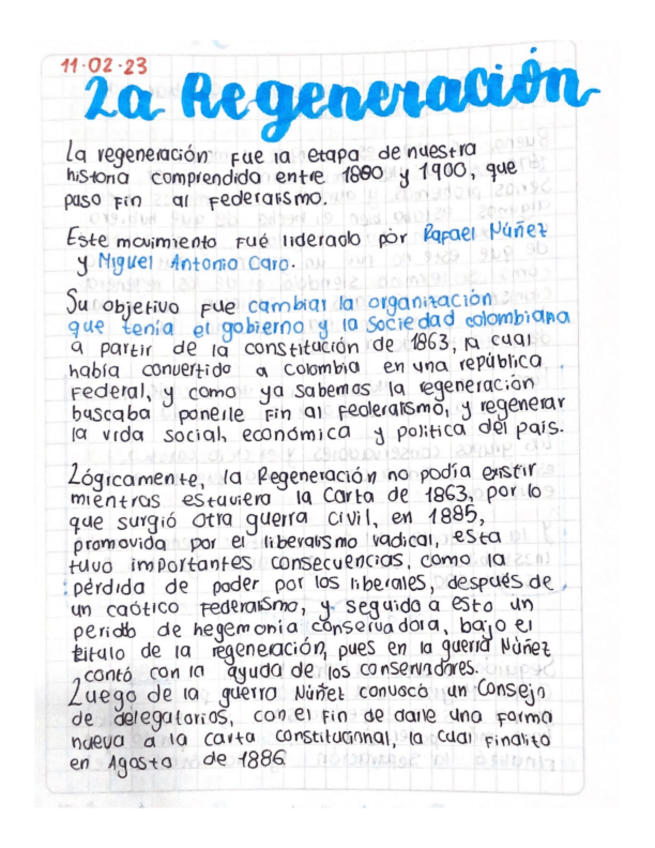 11·02·23
La Regeneración
La regeneración fue la etapa de nuestra
historia comprendida entre 1880 y 1900, que
puso fin al Federalismo.
Este movimiento fué liderado por Rafael Núñez
y Miguel Antonio Caro.
Su objetivo fue cambiar la organización
que tenía el gobierno y la Sociedad colombiana
a partir de la constitución de 1863, la cual
había convertido a Colombia en una república
Federal, y como ya sabemos la regeneración
buscaba ponerle Fin al Federalismo, y regenerar
la vida social, económica y politica del país.
Lógicamente, la Regeneración no podía existir
mientras estuviera la Carta de 1863, por lo
que surgió otra guerra civil, en 1885,
promovida por el liberalismo radical, esta
tuvo importantes consecuencias, como la
pérdida de poder por los liberales, después de
un caótico Federalismo, y seguido a esto un
periodo de hegemonía conservadora, bajo el
titulo de la regeneración, pues en la guerra Núñez
contó con la ayuda de los conservadores.
Luego de la guerra Núñez convocó un Consejo
de delegatorios, con el fin de darle una forma
nueva a la carta constitucional, la cual finalitó
en Agosto de 1886